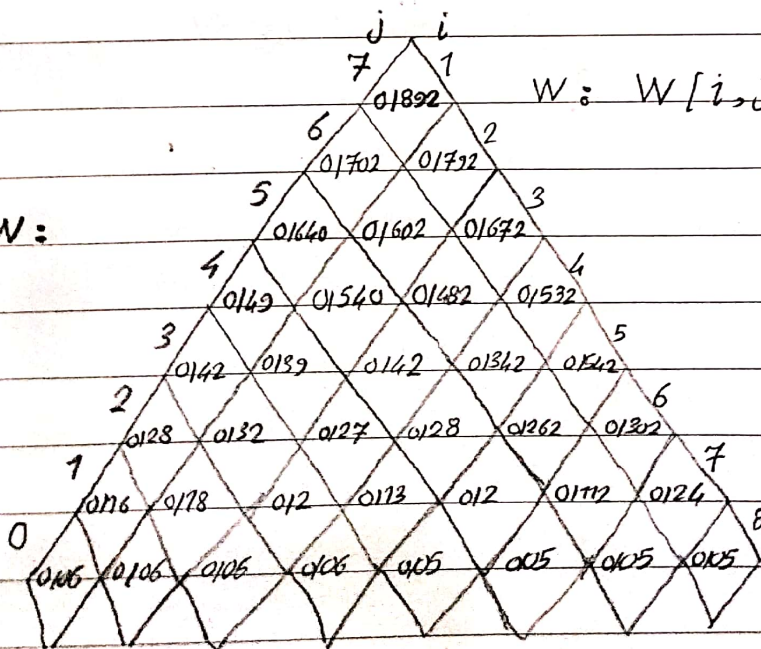 j i
7 1
0,892 W: W[i,
6 2
0,702 0,792
5 3
W:
0,640 0,602 0,672
4 4
0,49 0,540 0,482 0,532
3 5
0,42 0,39 0,42 0,342 0,542
2 6
0,28 0,32 0,27 0,28 0,262 0,302
1 7
0,16 0,18 0,2 0,13 0,2 0,112 0,24
0 8
0,06 0,06 0,06 0,06 0,05 0,05 0,05 0,05